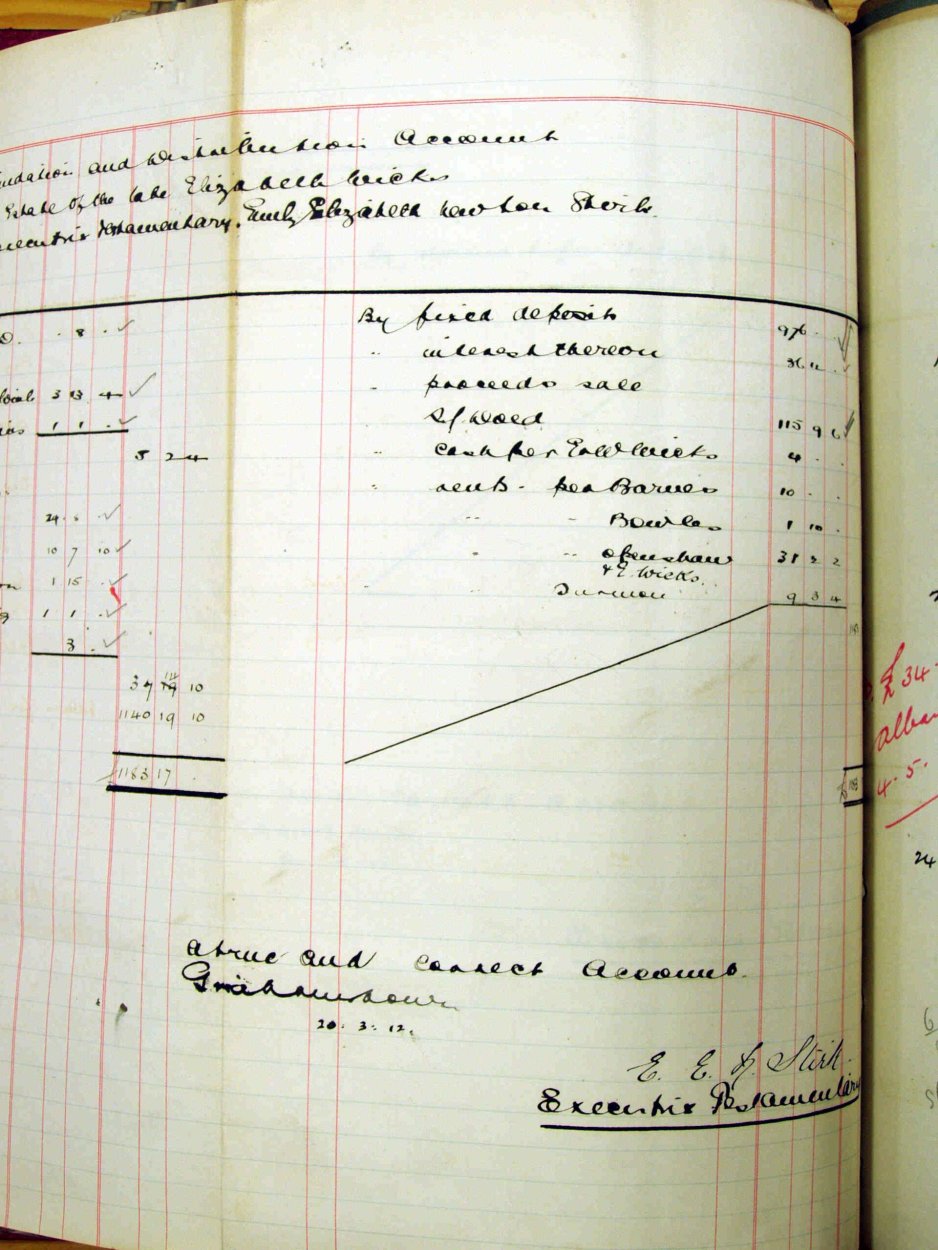 uidation and Distribution Account
Estate of the late Elizabeth Wicks
xecutrix Testamentary. Emily Elizabeth Newton Stirk.
D. . 8 .
3 13 4
1 1 .
5 2 4
24 . 6 .
10 7 10
1 15 .
1 1 .
3 .
37 14 10
1140 19 10
1183 17 .
By fixed deposit 976 . .
" interest thereon 36 11 .
" proceeds sale
of wood 115 9 6
" cash per E Wicks 4 . .
" rent - per Barnes 10 . .
" " Bowles 1 10 .
" " Openshaw 31 3 2
& E. Wicks.
" 9 3 4
a true and correct Account.
Grahamstown
20. 3. 12.
E. E. N. Stirk.
Executrix Testamentary
£34.
alba
4. 5.
24